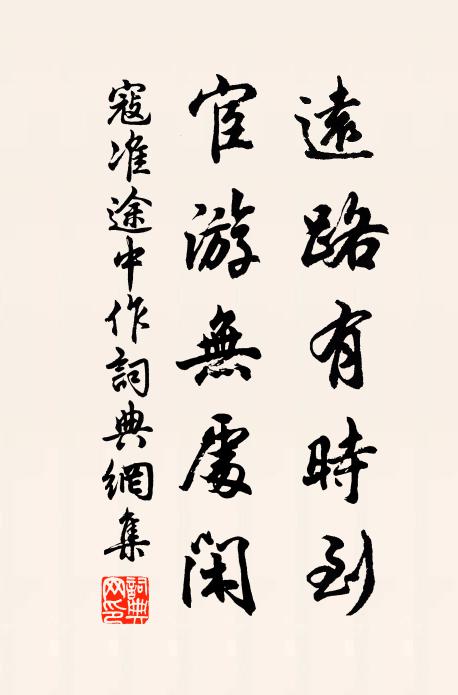 遠路有時到
宦游無處閑
寇准途中作詞典網集
詞典網印